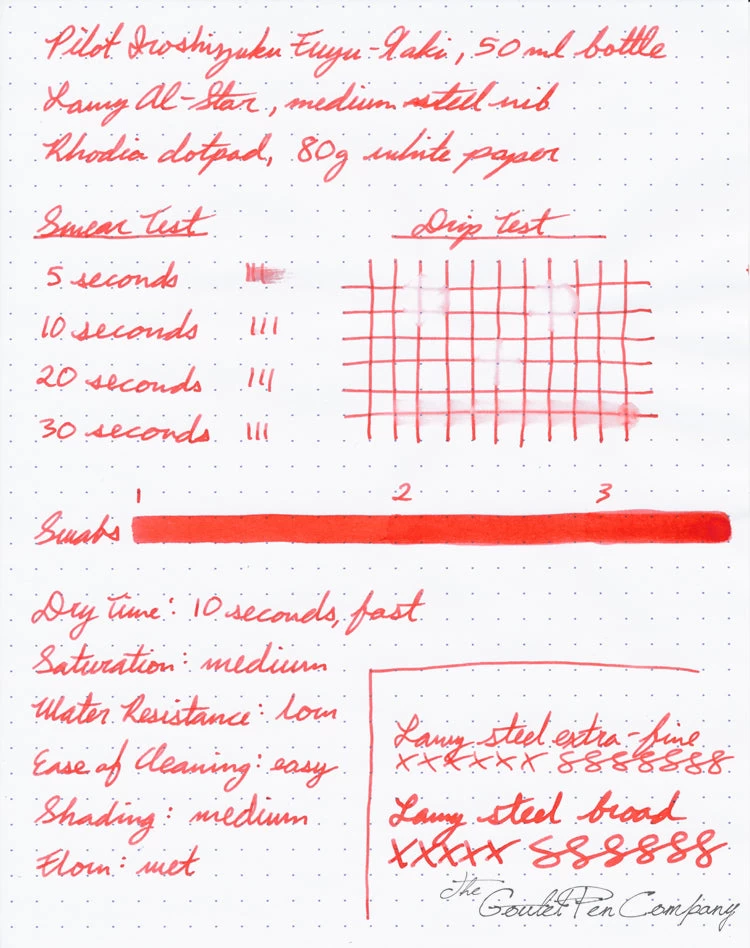 Pilot Iroshizuku Fuyu-Gaki, 50ml bottle
Lamy Al-Star, medium steel nib
Rhodia dotpad, 80g white paper
Smear Test
Drip Test
5 seconds
10 seconds
20 seconds
30 seconds
1 2 3
Swabs
Dry Time: 10 seconds, fast
Saturation: medium
Water Resistance: low
Ease of Cleaning: easy
Shading: medium
Flow: wet
Lamy steel extra-fine
xxxxxx 8888888
Lamy steel broad
xxxxx 888888
The Goulet Pen Company